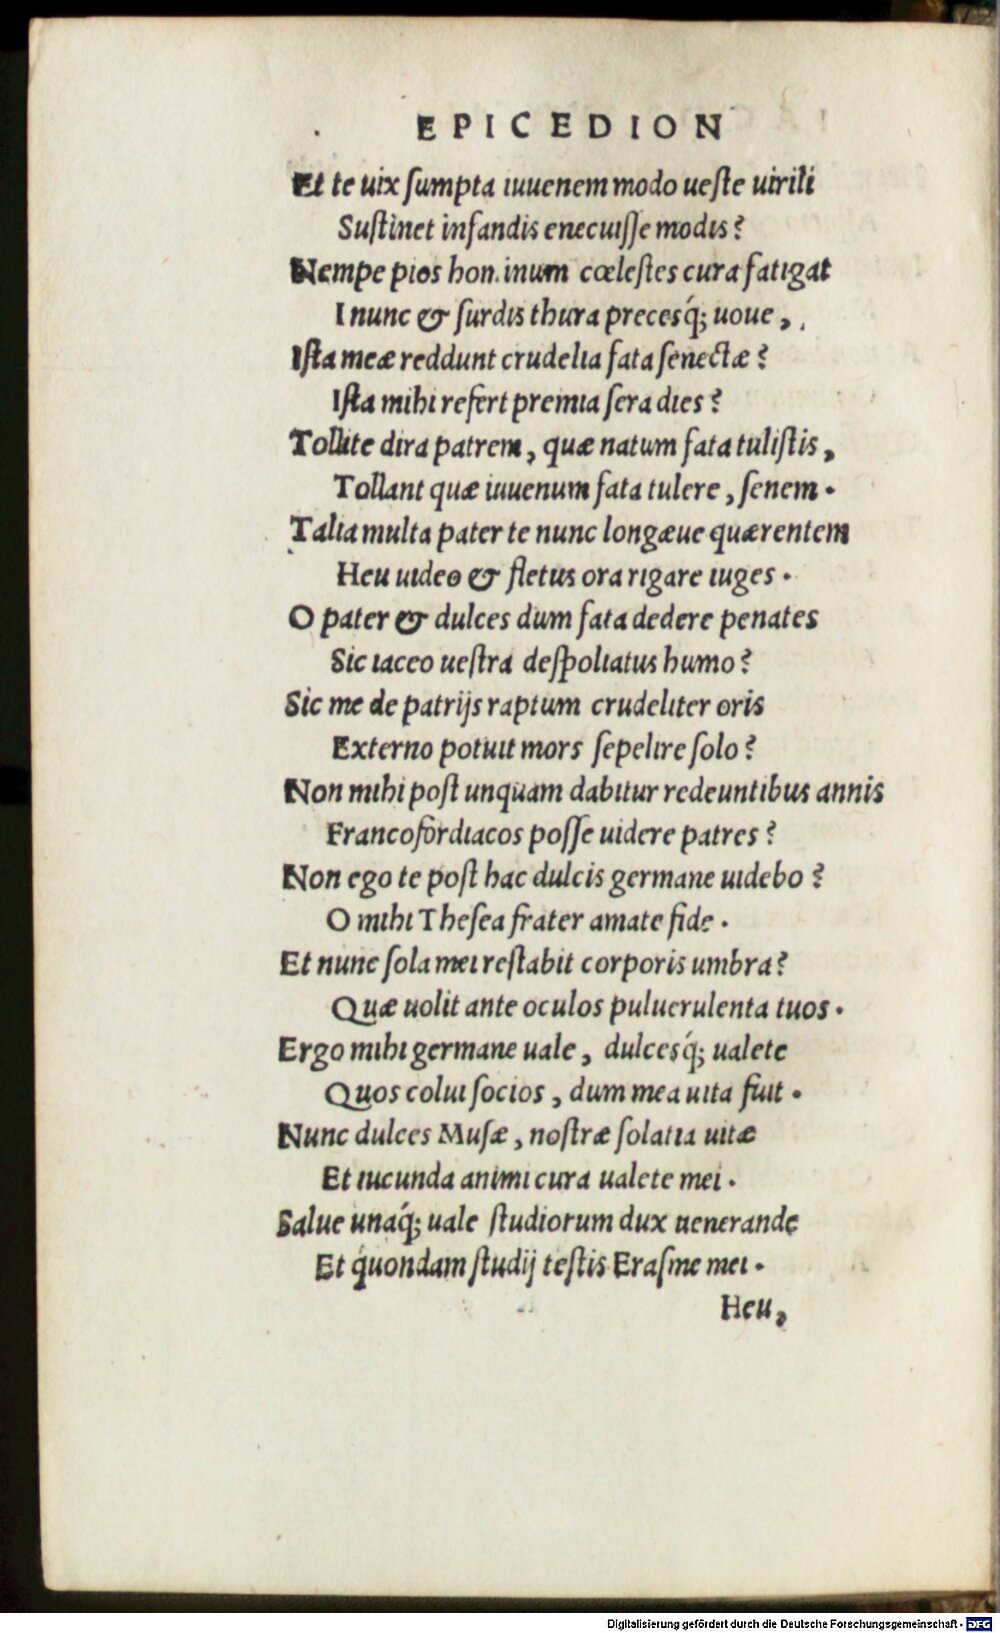 EPICEDION
Et te uix ſumpta iuuenem modo ueſte uirili
Suſtinet infandis enecuiſſe modis?
Nempe pios hominum cœleſtes cura fatigat
I nunc & ſurdis thura precesq́; uoue,
Iſta meæ reddunt crudelia fata ſenectæ?
Iſta mihi refert premia ſera dies?
Tollite dira patrem, quæ natum fata tuliſtis,
Tollant quæ iuuenum fata tulere, ſenem.
Talia multa pater te nunc longæue quærentem
Heu uideo & fletus ora rigare iuges.
O pater & dulces dum fata dedere penates
Sic iaceo ueſtra deſpoliatus humo?
Sic me de patrijs raptum crudeliter oris
Externo potuit mors ſepelire ſolo?
Non mihi poſt unquam dabitur redeuntibus annis
Francofordiacos poſſe uidere patres?
Non ego te poſt hac dulcis germane uidebo?
O mihi Theſea frater amate fide.
Et nunc ſola mei reſtabit corporis umbra?
Quæ uolit ante oculos puluerulenta tuos.
Ergo mihi germane uale, dulcesq́; ualete
Quos colui ſocios, dum mea uita fuit.
Nunc dulces Muſæ, noſtræ ſolatia uitæ
Et iucunda animi cura ualete mei.
Salue unaq́; uale ſtudiorum dux uenerande
Et quondam ſtudij teſtis Eraſme mei.
Heu,
Digitalisierung gefördert durch die Deutsche Forschungsgemeinschaft - DFG